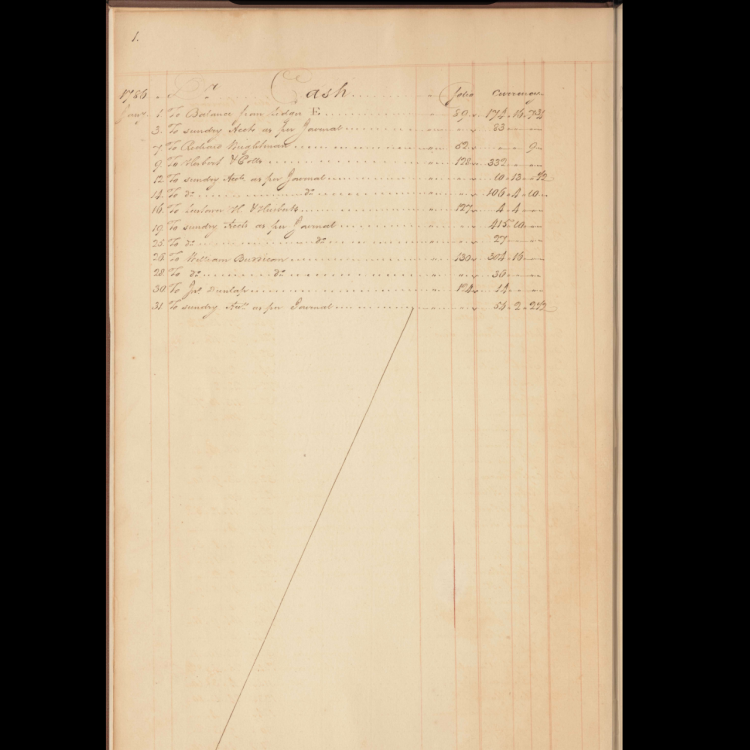 1.
1786 Dr. Cash folio Currency
Jany. 1. To Balance from E. 89 174.16.
3. To sundry Accts as per Journal 83
7. To Richard 62 9
9. To Herbert & Potts 128 332
12. To sundry Accts. as per Journal 10.13.
14. To do do 106.4.10
16. To H. & Herberts 127 4.4
19. To sundry Accts as per Journal 415.10
25. To do do 27
26. To William 130 304.16
28. To do do 36
30. To Jno. Dunlap 124 14
31. To sundry Accts. as per Journal 54.2.